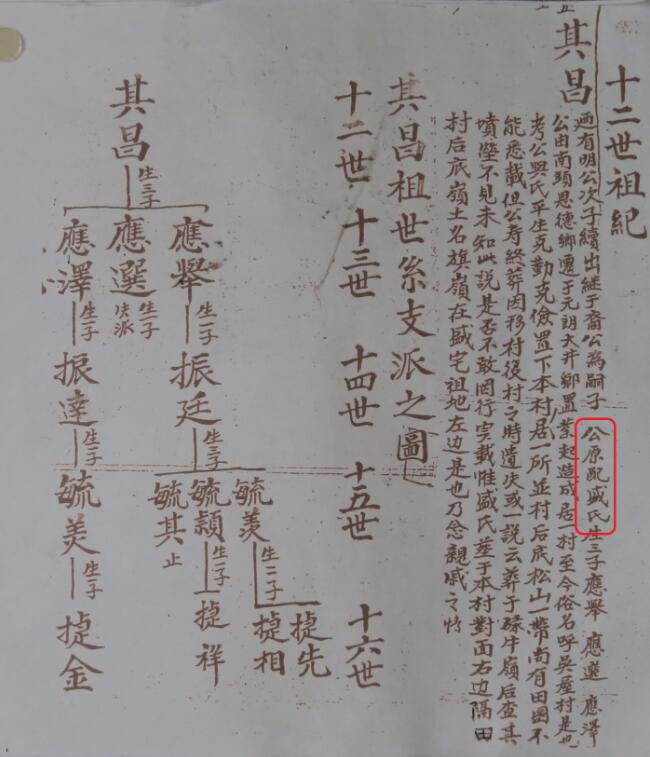 十二世祖紀
其昌
廼有明公次子續出継于裔公為嗣子 公原配盛氏生三子應舉 應選 應澤
公由南頭恩德鄉遷于元朗大井鄉置業起造成居一村至今俗名呼吳屋村是也
考公與氏平生克勤克儉置下本村居一所並村后底松山一帶尚有田園不
能悉載但公寿終葬因移村後村之時遺失或一說云葬于碌牛嶺后查其
墳塋不見未知此說是否不敢因行实載惟盛氏塟于本村對面右边隔田
村后底嶺土名旗嶺在盛宅祖地左边是也乃念親戚之情
其昌祖世系支派之圖
十二世 十三世 十四世 十五世 十六世
其昌
生三子
應舉
生一子
振廷
生三子
毓羨
生二子
捷先
捷相
毓頴
生一子
捷祥
毓其 止
應選
生子
失派
應澤
生一子
振達
生一子
毓美
生一子
捷金